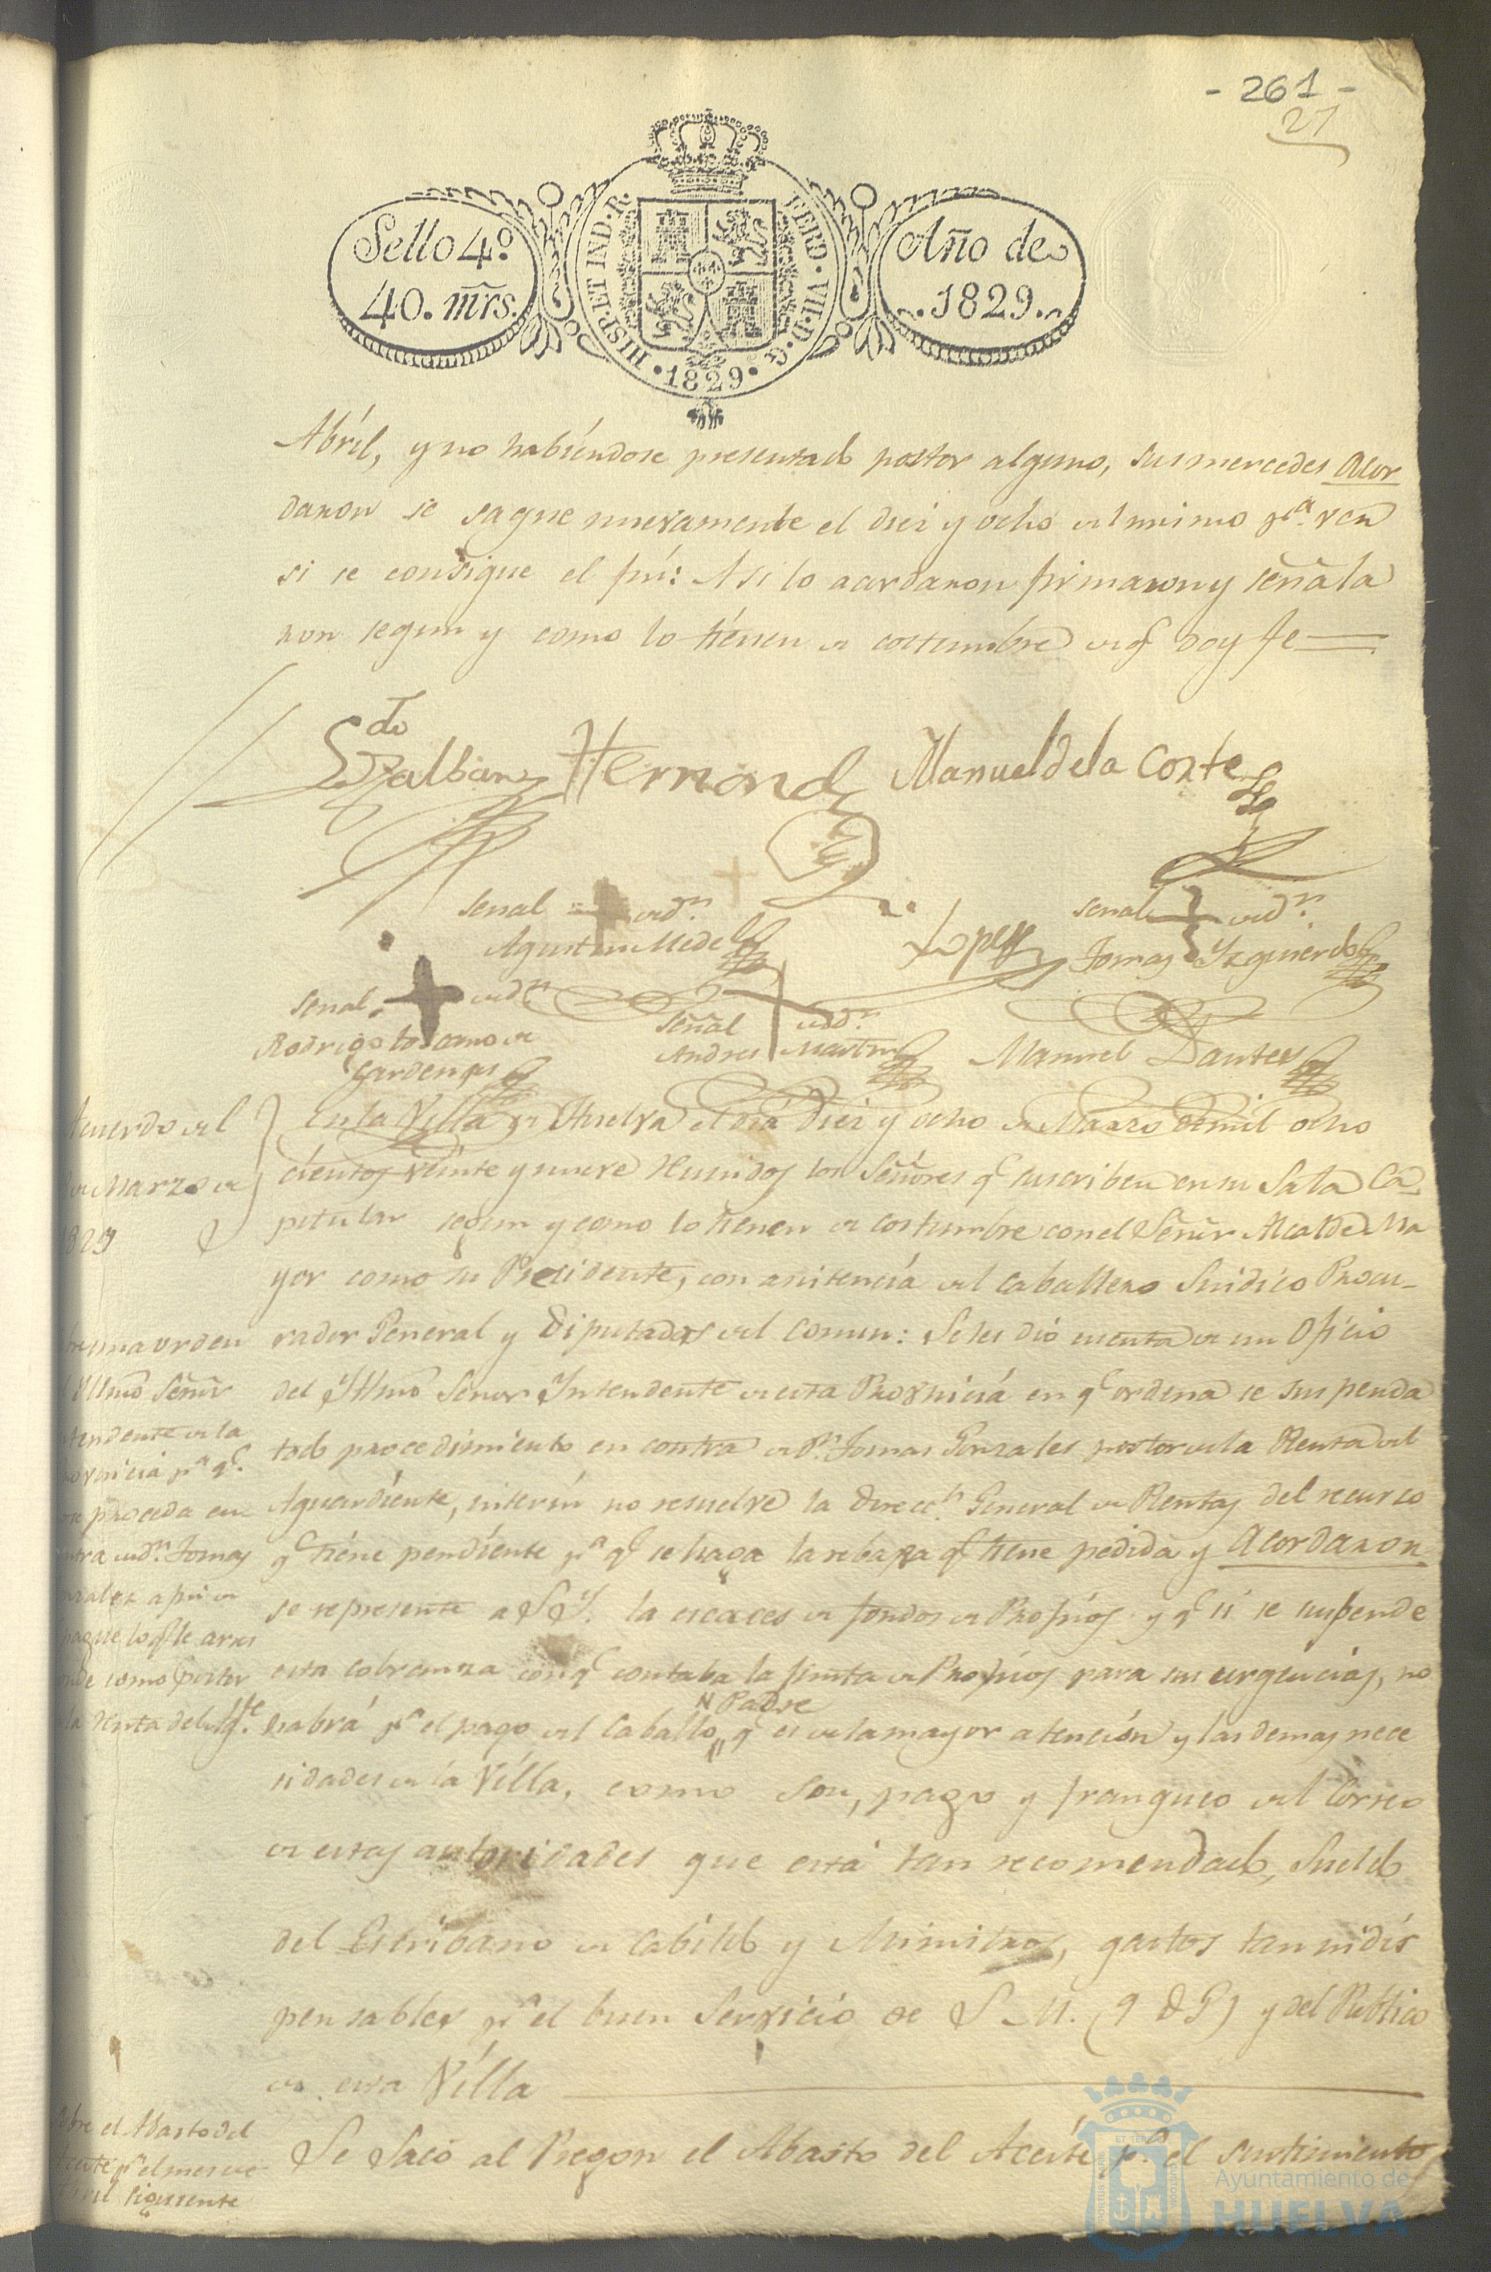 - 261 -
27
Sello 4º
40. mrs.
HISP. ET IND. R. FERD. VII. D. G.
1829
Año de
1829
Abril, y no habiendose presentado postor alguno, sus mercedes acor
daron se saque nuevamente el diez y ocho del mismo pª. ver
si se consigue el fin: Asi lo acordaron firmaron y señala
ron segun y como lo tienen de costumbre de q doy fe
Hernand
Manuel de la Corte
señal de Dn.
Agustin Medel
Lopez
señal de Dn.
Tomas Yzquierdo
señal de Dn
Rodrigo Lozano de
Cardenas
señal de Dn.
Andres Martin
Manuel Dantes
Acuerdo del
de Marzo de
1829
En la Villa de Huelva el dia diez y ocho de Marzo de mil ocho
cientos veinte y nueve reunidos los Señores q suscriben en su Sala Ca
pitular segun y como lo tienen de costumbre con el Señor Alcalde Ma
yor como su Presidente, con asistencia del Caballero Sindico Procu-
rador General y Diputados del comun: Se les dió cuenta de un Oficio
del Yltmo Señor Yntendente de esta Provincia en q ordena se suspenda
todo procedimiento en contra de Dn. Tomas Gonzales postor de la Renta del
Aguardiente, interin no resuelve la Direccn. General de Rentas del recurso
q tiene pendiente pª q se haga la rebaxa q tiene pedida y Acordaron
se represente a S.Y. la escases de fondos de Propios y q si se suspende
esta cobranza con q contaba la Junta de Propios para sus urgencias, no
habrá pª el pago del Caballo Padre q es de la mayor atención y las demas nece
sidades de la Villa, como son, pago y franqueo del Correo
de estas autoridades que está tan recomendado, Sueldo
del Escribano de Cabildo y Ministros, gastos tan indis
pensables pª el buen Servicio de S.M. (q D G) y del Publico
de esta Villa
Sobre una orden
del Yltmo Señor
Yntendente de la
Provincia pª q.
se proceda en
contra de Dn. Tomas
Gonzalez a fin de
pague lo q le
como postor
la renta del Agte.
Sobre el Abasto del
Aceite pª el mes de
Abril siguiente
Se Sacó al Pregon el Abasto del Aceite pª. el surtimiento
Ayuntamiento de
HUELVA